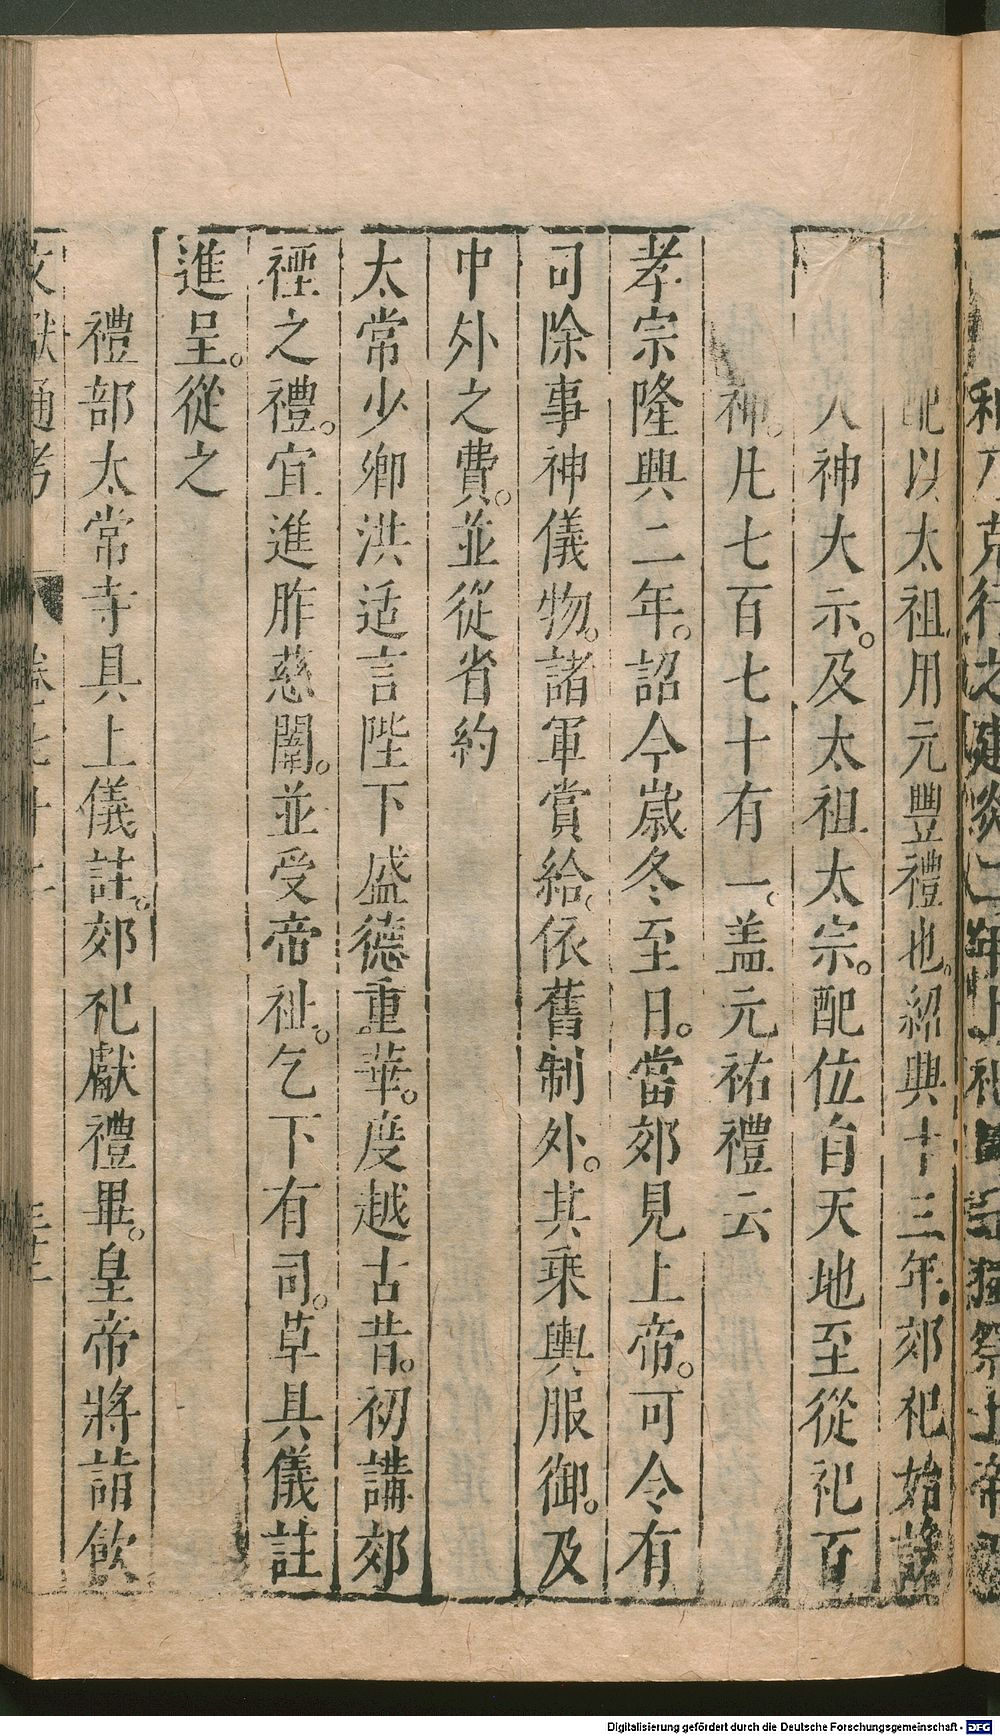 配以太祖用元豐禮也。紹興十三年。郊祀始
人神大示。及太祖太宗。配位自天地至從祀百
神。凡七百七十有一。盖元祐禮云
孝宗隆興二年。詔今嵗冬至日。當郊見上帝。可令有
司除事神儀物。諸軍賞給。依舊制外。其乗輿服御。及
中外之費。並從省約
太常少卿洪适言陛下盛德重華。度越古昔。初講郊
禋之禮。宜進胙慈闈。並受帝祉。乞下有司。草具儀註
進呈。從之
禮部太常寺具上儀註。郊祀獻禮畢。皇帝將詣飲
文獻通考
Digitalisierung gefördert durch die Deutsche Forschungsgemeinschaft - DFG